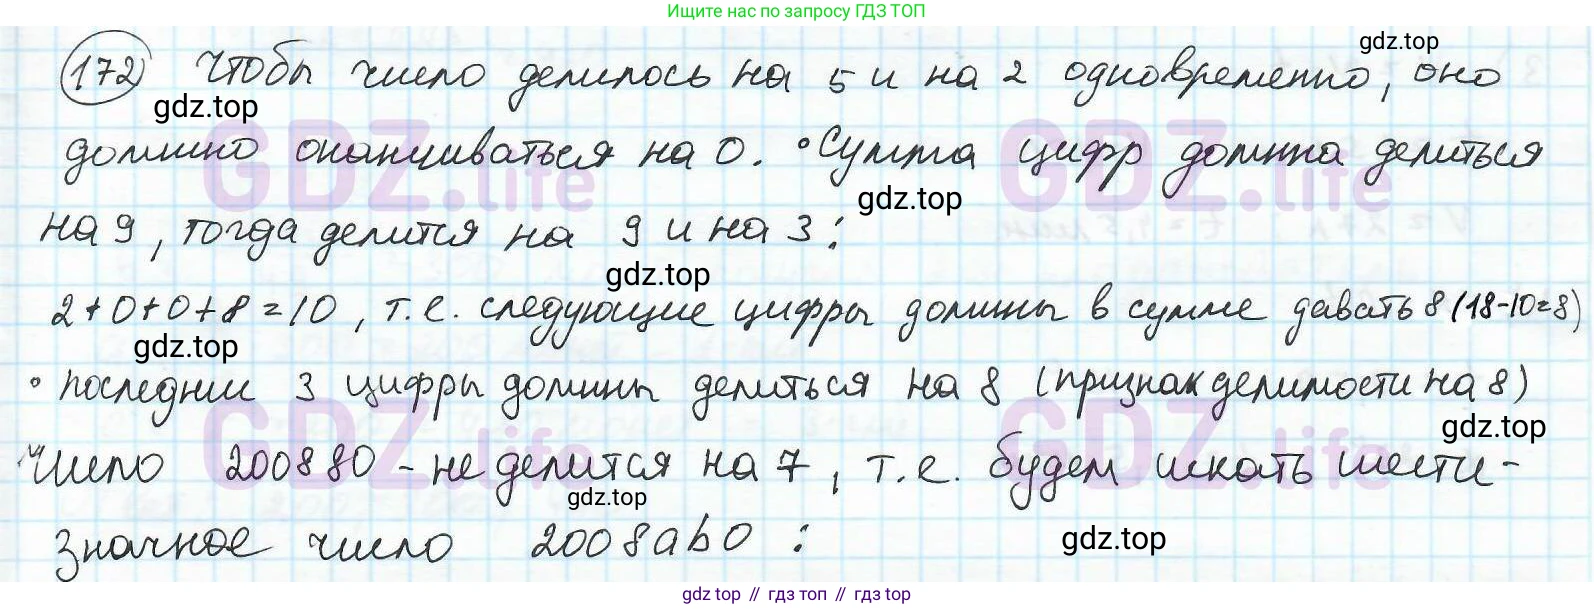 Ищите нас по запросу ГДЗ ТОП
gdz.top
172 Чтобы число делилось на 5 и на 2 одновременно, оно
gdz.top
должно оканчиваться на 0. • Сумма цифр должна делиться
GDZ.life GDZ.life
gdz.top
на 9, тогда делится на 9 и на 3:
gdz.top
2+0+0+8=10, т.е. следующие цифры должны в сумме давать 8 (18-10=8)
gdz.top
• последнии 3 цифры должны делиться на 8 (признак делимости на 8)
GDZ.life GDZ.life
gdz.top
Число 200880 - не делится на 7, т.е. будем искать шести-
gdz.top
значное число 2008ab0 :
gdz.top
gdz top // гдз топ // gdz top